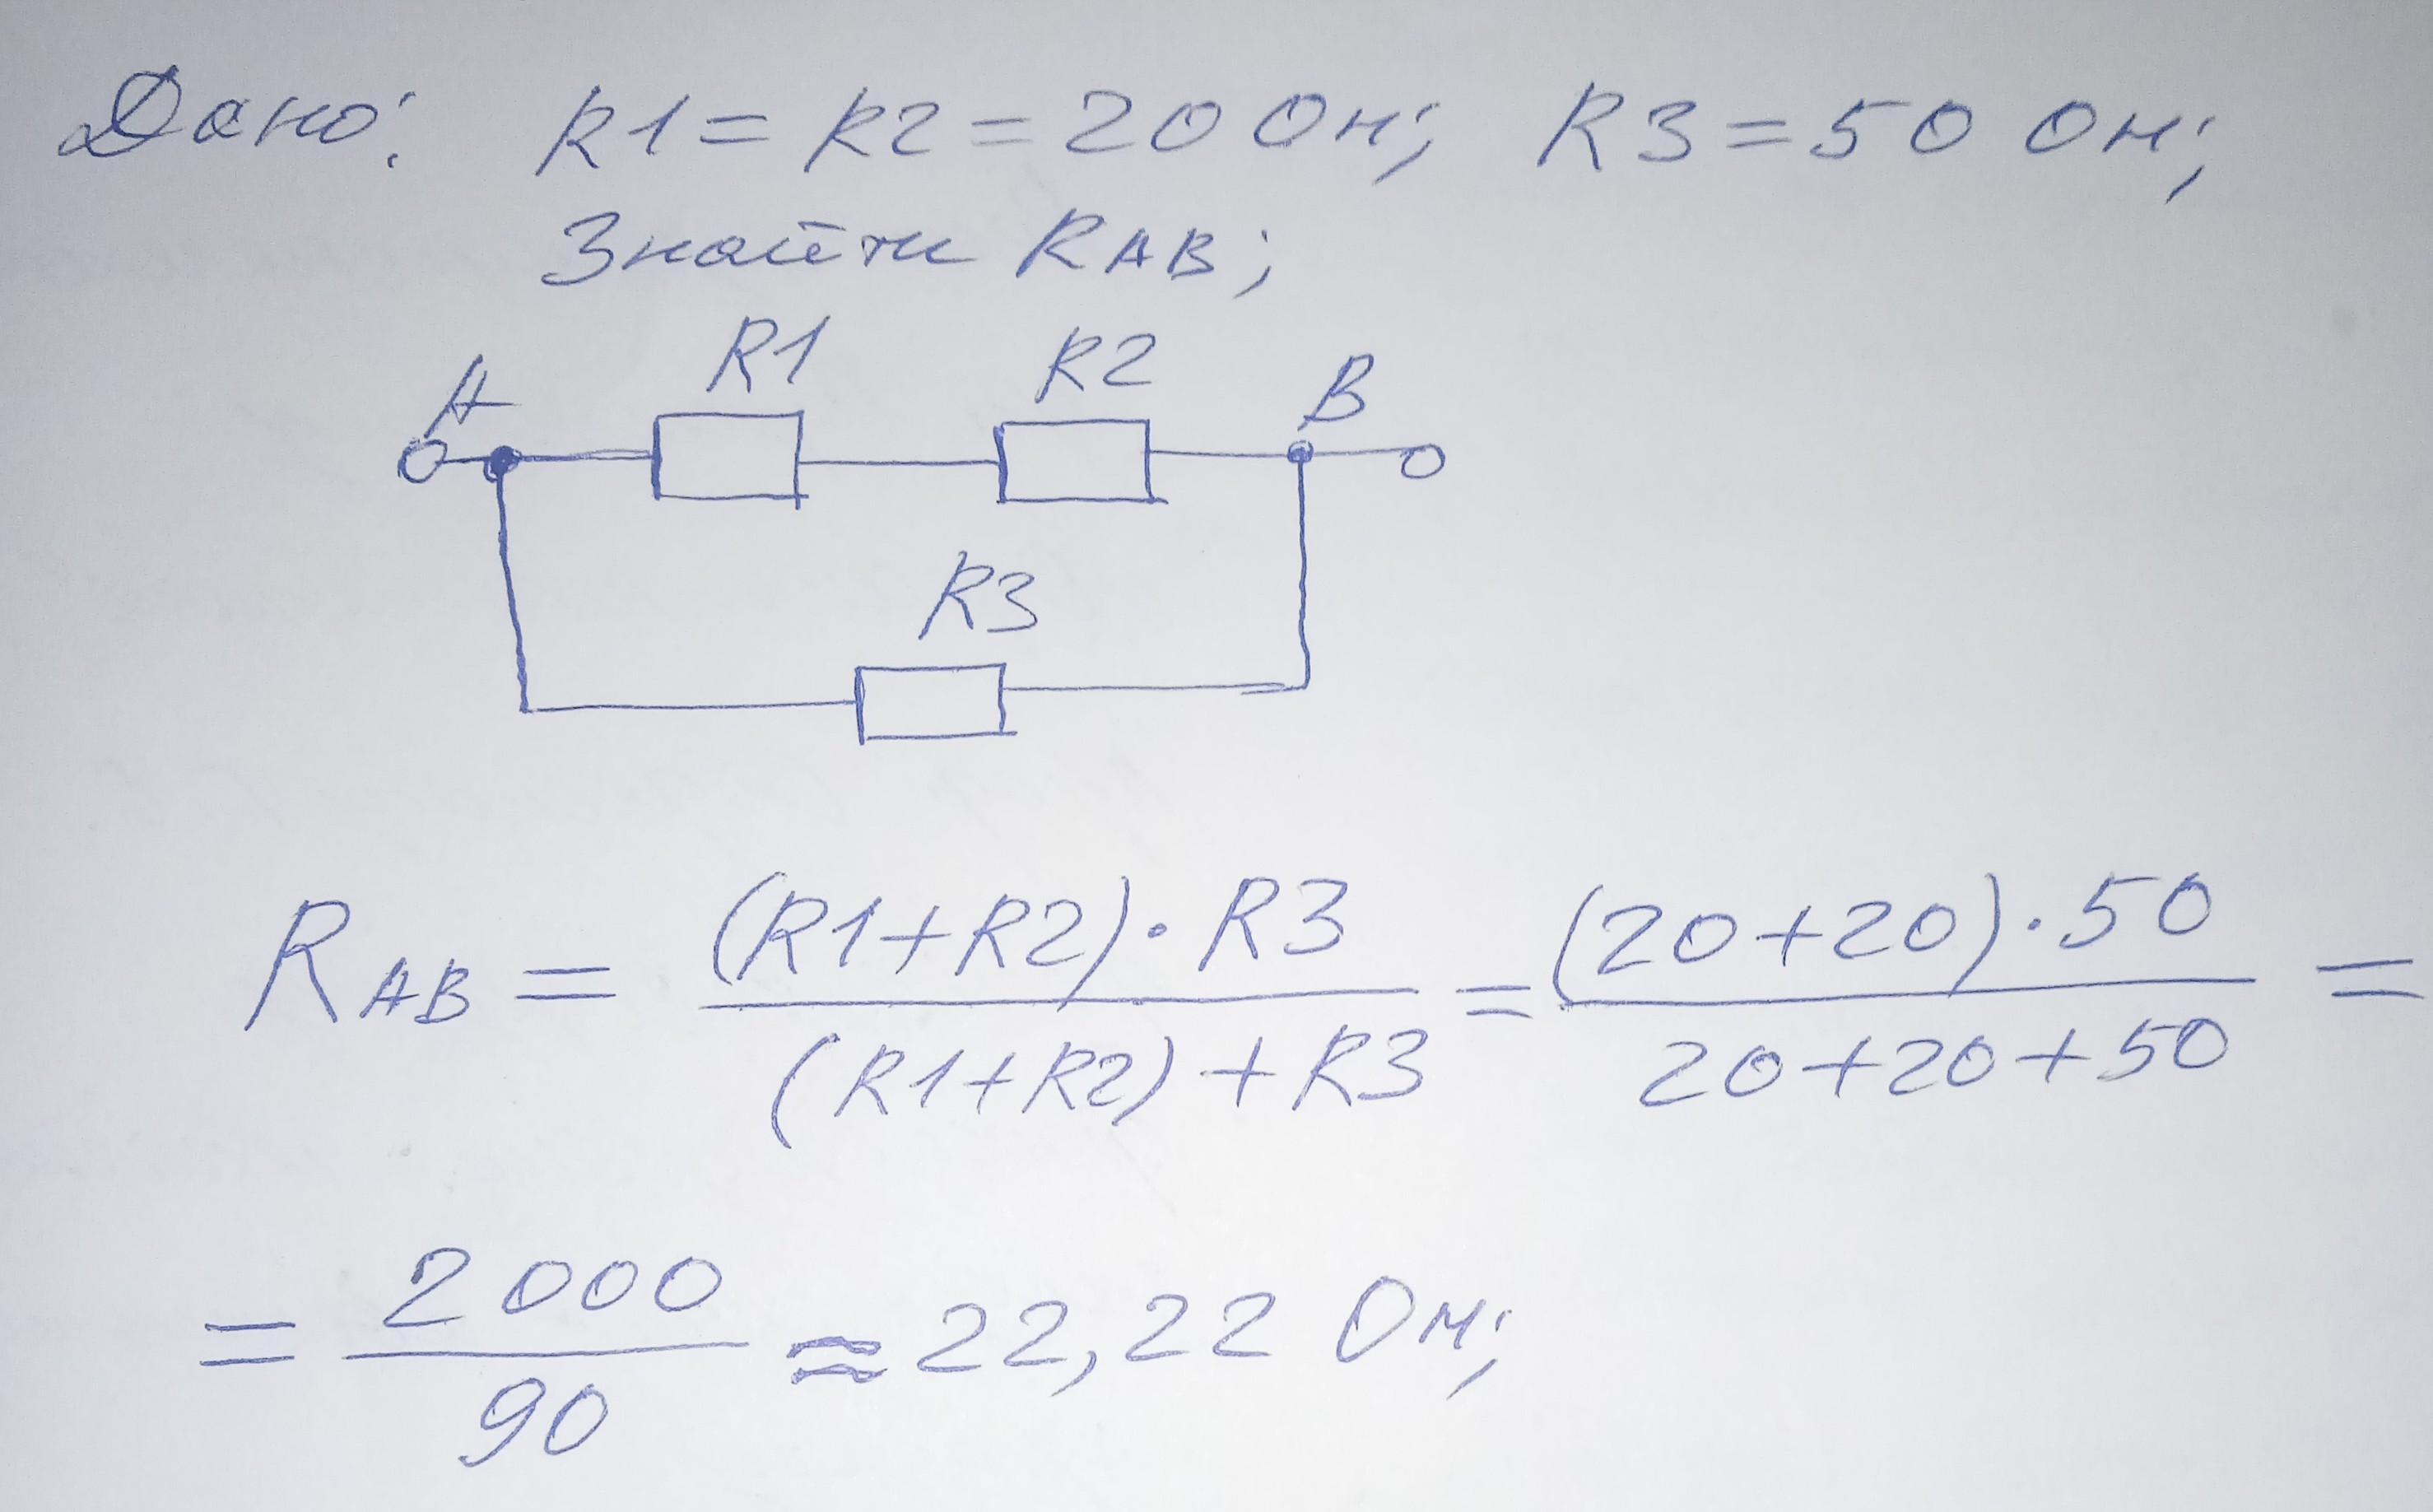 Дано: R1 = R2 = 20 Ом; R3 = 50 Ом;
Знайти RAB;
A R1 R2 B
R3
RAB = (R1+R2)·R3 / (R1+R2)+R3 = (20+20)·50 / 20+20+50 =
= 2000 / 90 ≈ 22,22 Ом;